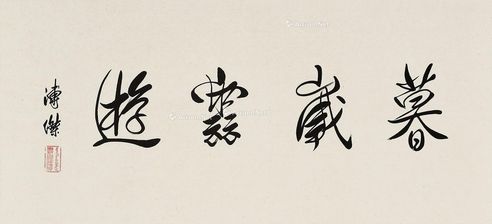 暮歲遊
溥傑